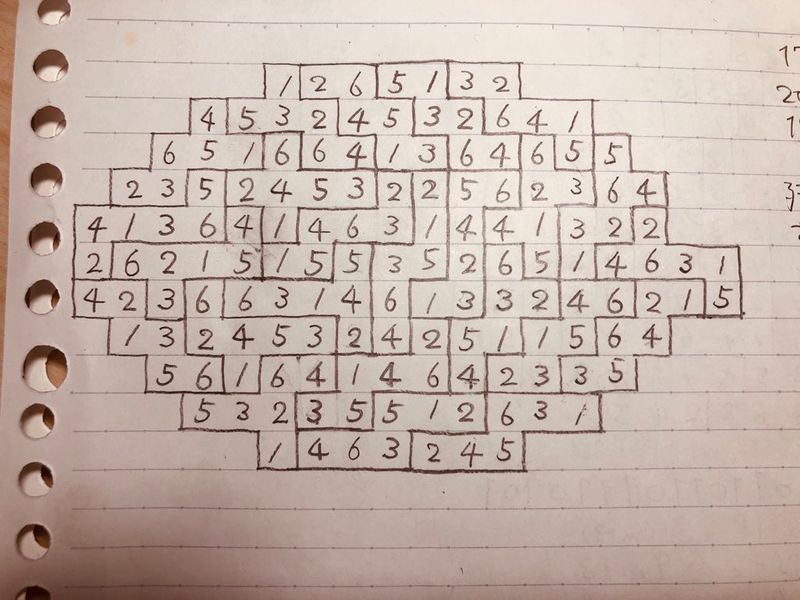 1 2 6 5 1 3 2
4 5 3 2 4 5 3 2 6 4 1
6 5 1 6 6 4 1 3 6 4 6 5 5
2 3 5 2 4 5 3 2 2 5 6 2 3 6 4
4 1 3 6 4 1 4 6 3 1 4 4 1 3 2 2
2 6 2 1 5 1 5 5 3 5 2 6 5 1 4 6 3 1
4 2 3 6 6 3 1 4 6 1 3 3 2 4 6 2 1 5
1 3 2 4 5 3 2 4 2 5 1 1 5 6 4
5 6 1 6 4 1 4 6 4 2 3 3 5
5 3 2 3 5 5 1 2 6 3 1
1 4 6 3 2 4 5